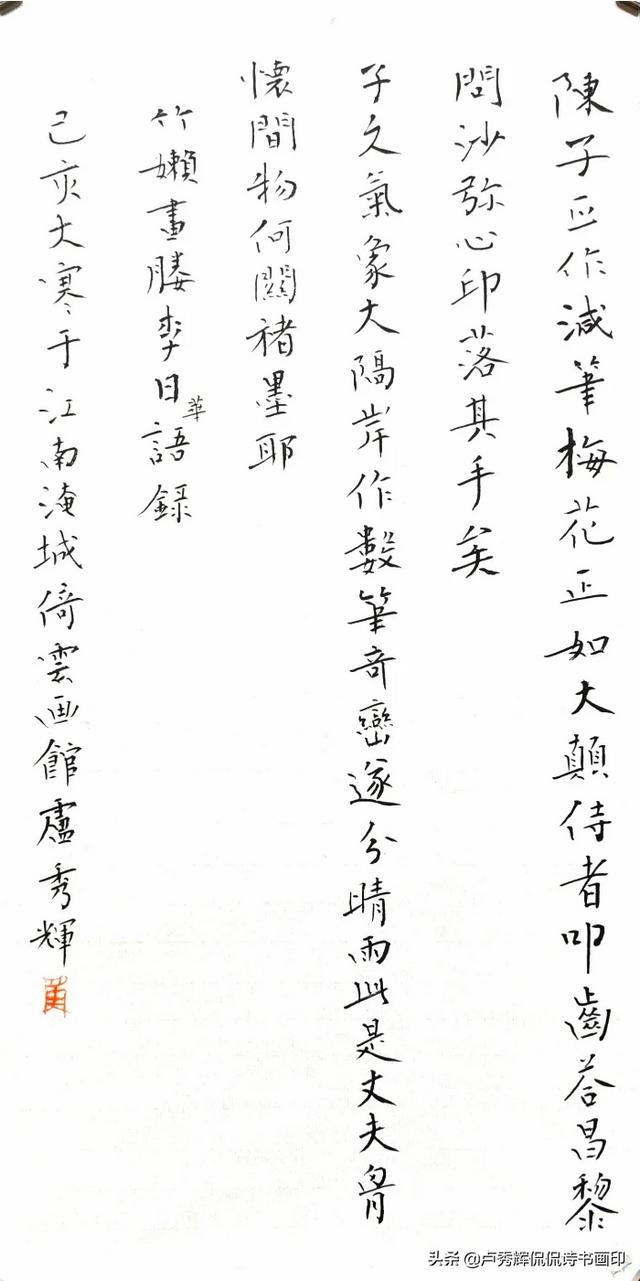 陳子正作減筆梅花正如大顛侍者叩齒荅昌黎
問沙弥心印落其手矣
子久氣象大隔岸作數筆奇巒遂分晴雨此是丈夫胷
懷間物何關褚墨耶
竹嬾畫媵李日華語録
己亥大寒于江南淹城倚雲画館盧秀輝
头条 @卢秀辉侃侃诗书画印